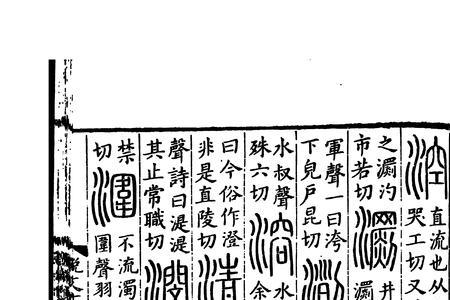 涳直流也从
哭工切又
之瀱汋
市若切
瀱井
瀱
軍聲一曰洿
下皃戶昆切
洌
水叔聲
殊六切
溶水
余
曰今俗作澄
非是直陵切
清
聲詩曰湜湜
其止常職切
潣
禁
切
潿不流濁
圍聲羽